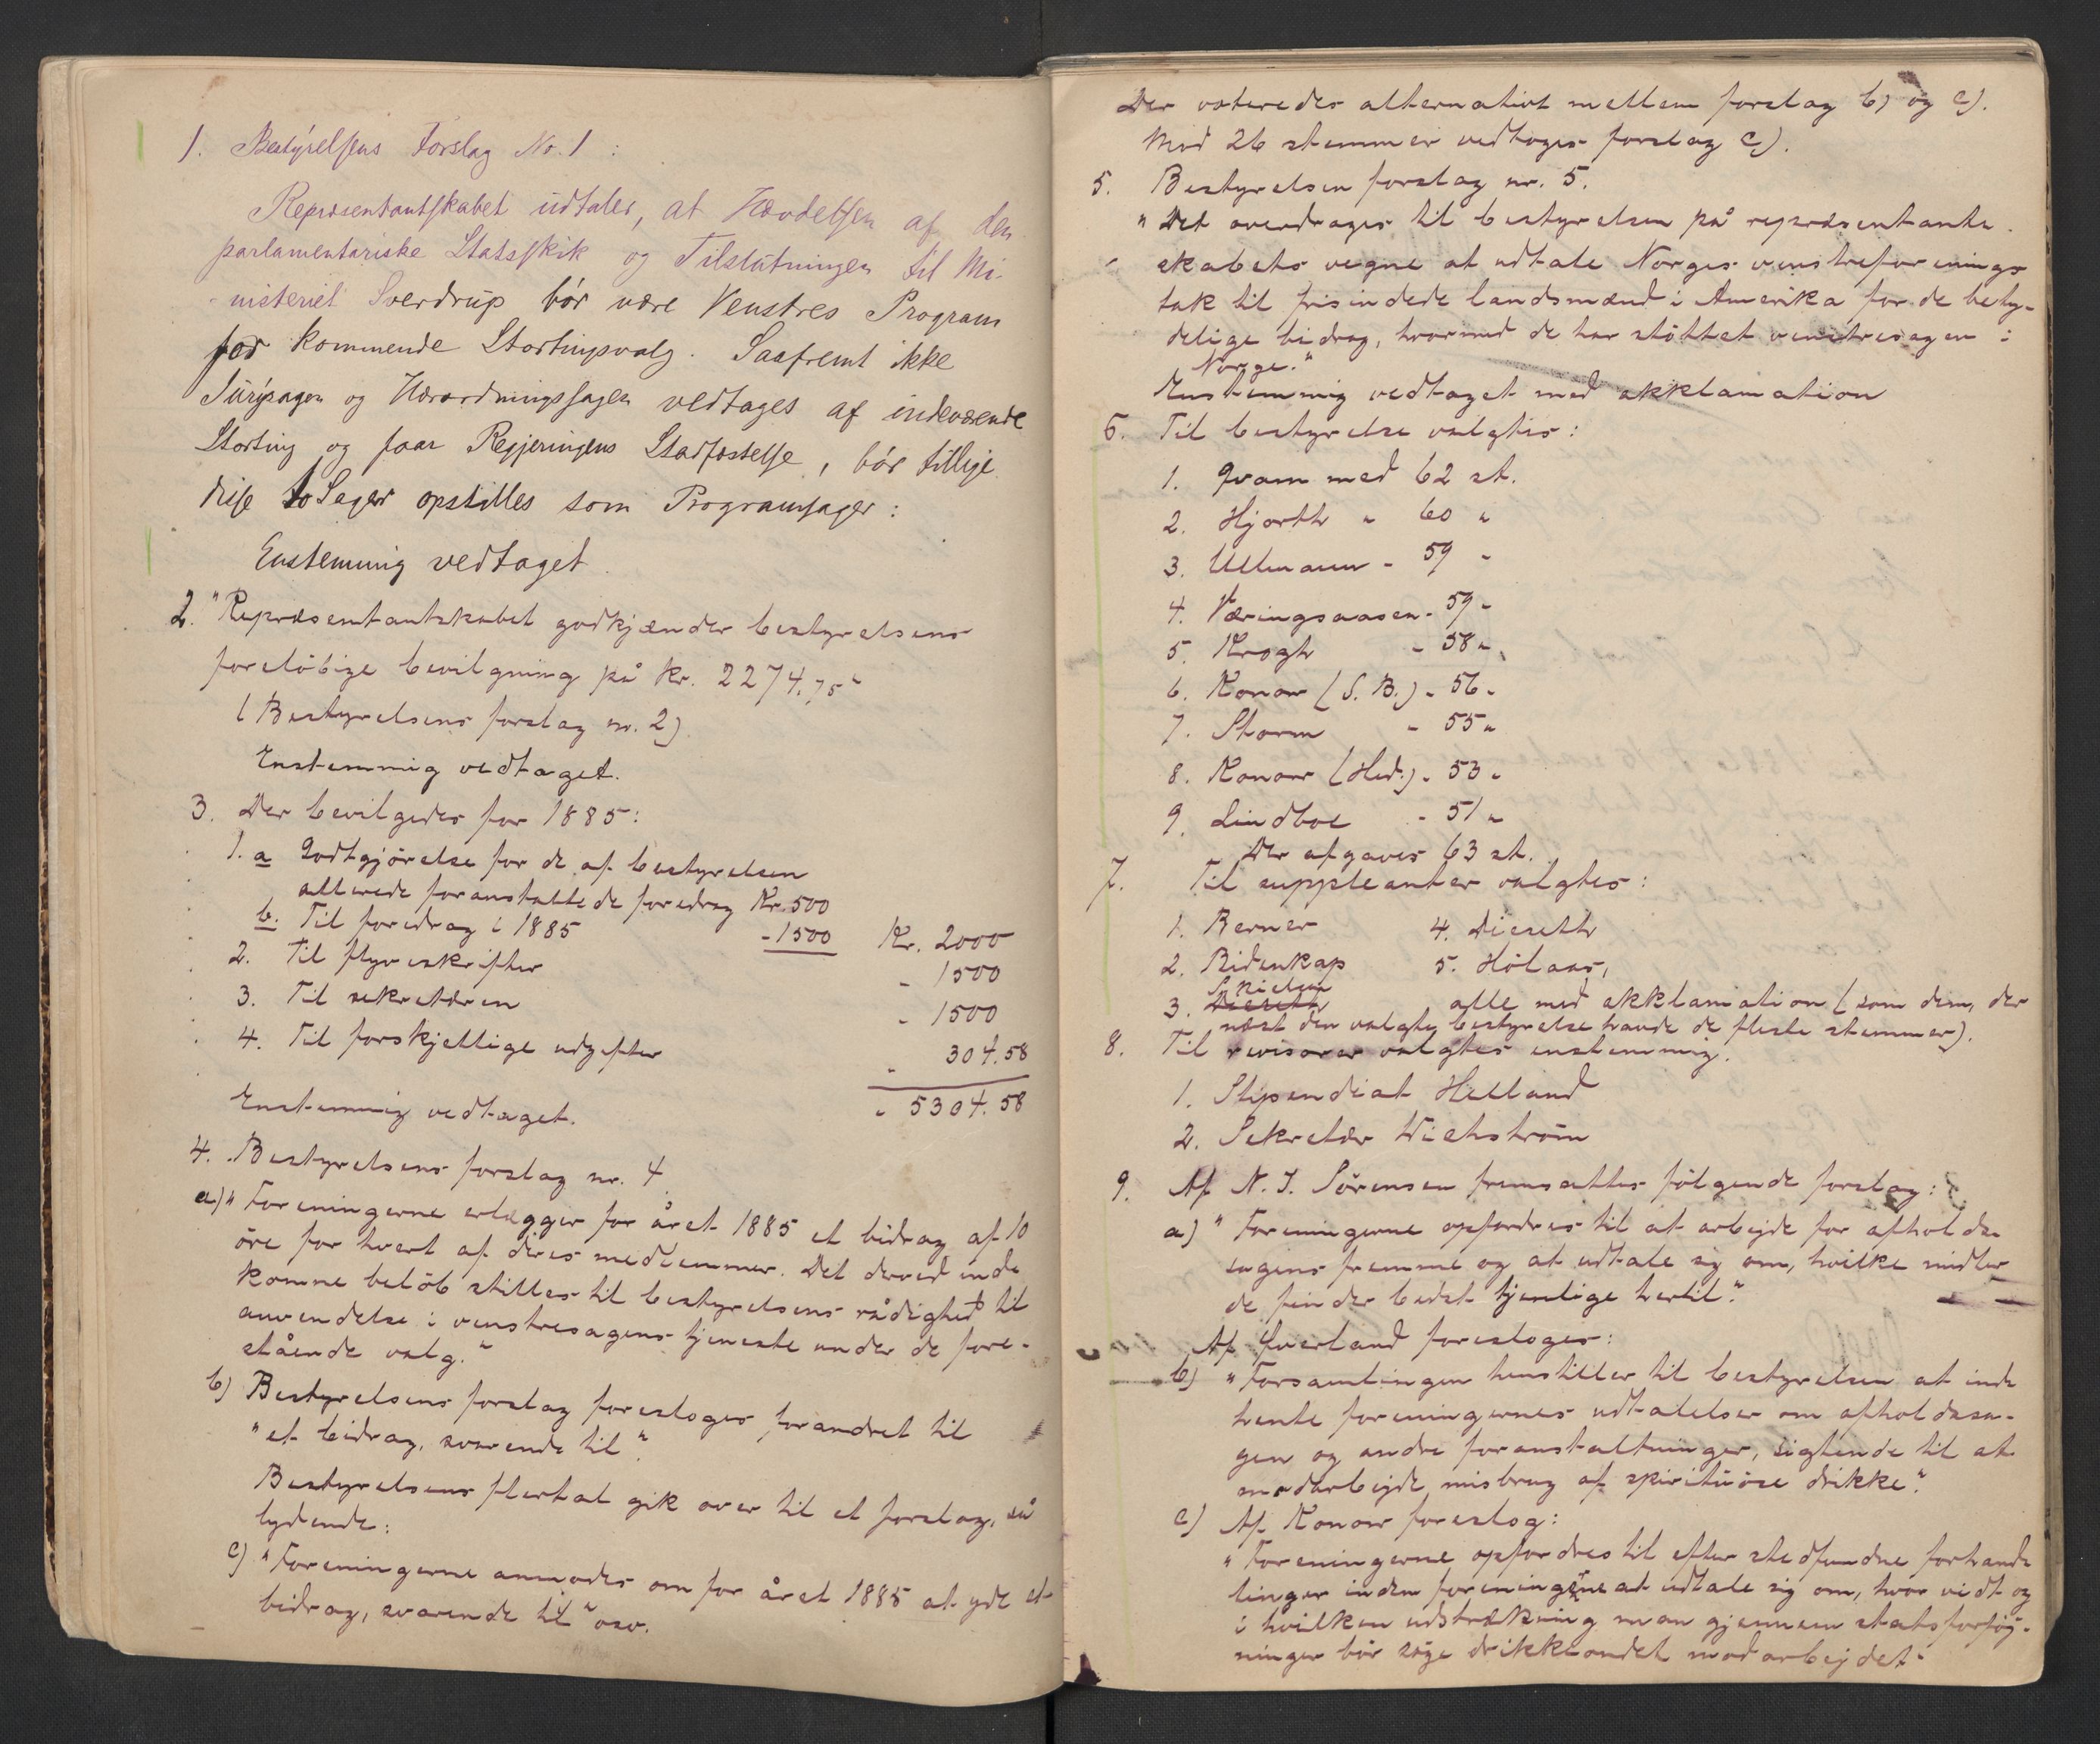 1. Bestyrelsens Forslag No. 1 :
Repræsentantskabet udtaler, at Hævdelsen af den
parlamentariske Statsskik og Tilslutningen til Mi-
nisteriet Sverdrup bör være Venstres Program
for kommende Stortingsvalg. Saafremt ikke
Jurysagen og Hærordningssagen vedtages af indeværende
Storting og faar Regjeringens Stadfæstelse, bör tillige
disse to Sager opstilles som Programsager :
Enstemmig vedtaget.
2. "Repræsentantskabet godkjænder bestyrelsens
foreløbige bevilgning på kr. 2274,75"
(Bestyrelsens forslag nr. 2)
Enstemmig vedtaget.
3. Der bevilgedes for 1885:
1. a Godtgjörelse for de af bestyrelsen
allerede foranstaltede foredrag Kr. 500
b. Til foredrag i 1885 - 1500 Kr. 2000
2. Til flyveskrifter - 1500
3. Til sekretæren - 1500
4. Til forskjellige udgifter - 304.58
Enstemmig vedtaget. - 5304.58
4. Bestyrelsens forslag nr. 4
a) "Foreningerne erlægger for året 1885 et bidrag af 10
öre for hvert af deres medlemmer. Det derved inde
komne belöb stilles til bestyrelsens rådighed til
anvendelse i venstresagens tjeneste under de fore-
stående valg."
b) Bestyrelsens forslag foresloges forandret til
"et bidrag, svarende til".
Bestyrelsens flertal gik over til et forslag, så
lydende:
c) "Foreningerne anmodes om for året 1885 at yde et
bidrag, svarende til" osv.
Der voteredes alternativt mellem forslag b) og c).
Mod 26 stemmer vedtoges forslag c).
5. Bestyrelsen forslag nr. 5.
"Det overdrages til bestyrelsen på repræsentant-
skabets vegne at udtale Norges venstreforenings
tak til frisindede landsmænd i Amerika for de bety-
delige bidrag, hvormed de har stöttet venstresagen i
Norge."
Enstemmig vedtaget med akklamation
6. Til bestyrelse valgtes:
1. Qvam med 62 st.
2. Hjorth " 60 "
3. Ullmann - 59 -
4. Væringsaasen - 59 -
5. Krogh - 58 "
6. Konow (S. B.) - 56 -
7. Storm - 55 "
8. Konow (Hed.) - 53 -
9. Lindboe - 51 "
Der afgaves 63 st.
7. Til suppleanter valgtes:
1. Berner 4. Dieseth
2. Bidenkap 5. Hölaas,
Nielsen
3. Dieseth alle med akklamation (som dem, der
næst den valgte bestyrelse havde de fleste stemmer).
8. Til revisorer valgtes enstemmig.
1. Stipendiat Helland
2. Sekretær Wichström
9. Af N. J. Sörensen fremsattes fölgende forslag:
a) "Foreningerne opfordres til at arbejde for afholds-
sagens fremme og at udtale sig om, hvilke midler
de finder bedst tjenlige hertil".
Af Qverland foresloges:
b) "Forsamlingen henstiller til bestyrelsen at ind-
hente foreningernes udtalelser om afholdssa-
gen og andre foranstaltninger, sigtende til at
modarbejde misbrug af spirituöse drikke".
c) Af Konow foreslog:
"Foreningerne opfordres til efter stedfundne forhand-
linger inden foreningerne at udtale sig om, hvor vidt og
i hvilken udstrækning man gjennem statsforföj-
ninger bör söge drikkeondet modarbejdet."